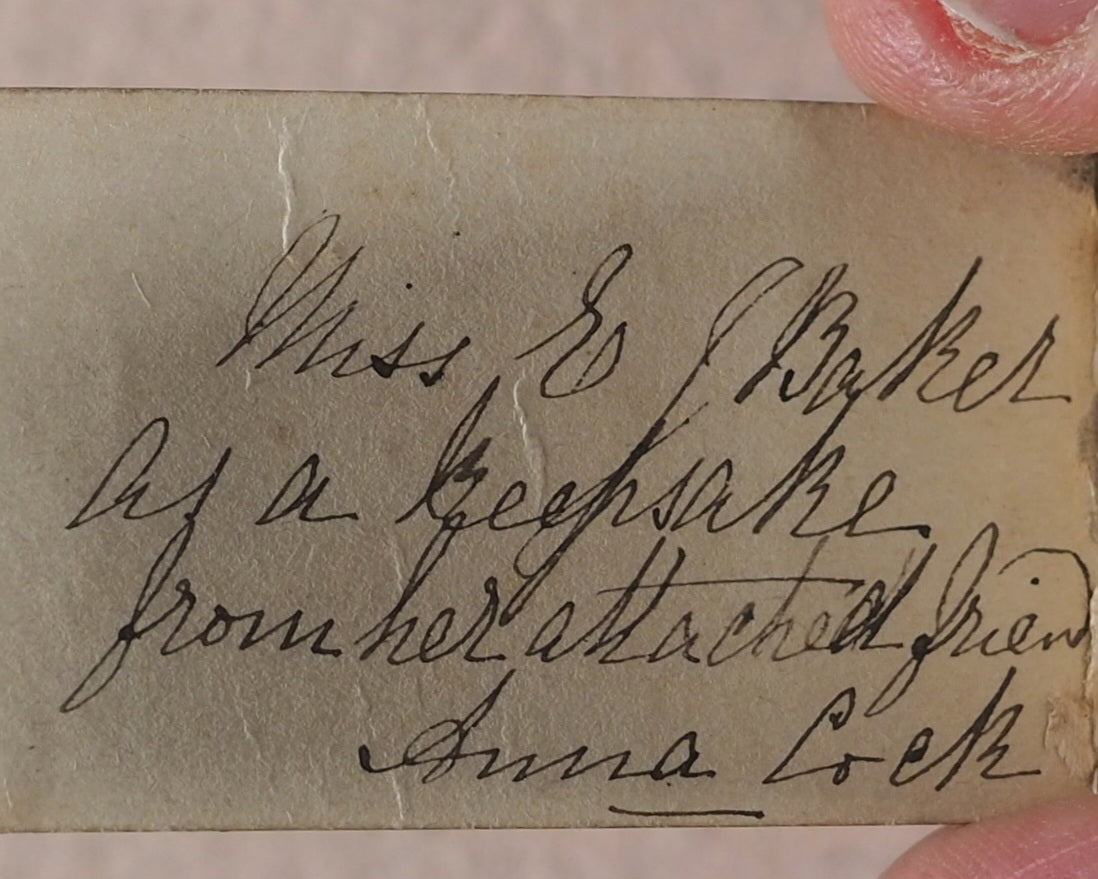 Miss E J Baker
As a keepsake
from her attached friend
Anna Cock